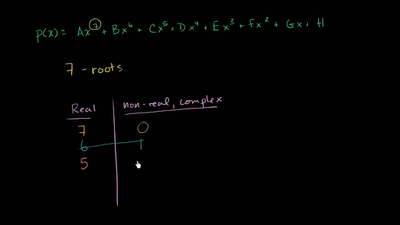 p(x) = Ax⁷ + Bx⁶ + Cx⁵ + Dx⁴ + Ex³ + Fx² + Gx + H
7 - roots
Real non-real, complex
7 0
6 1
5